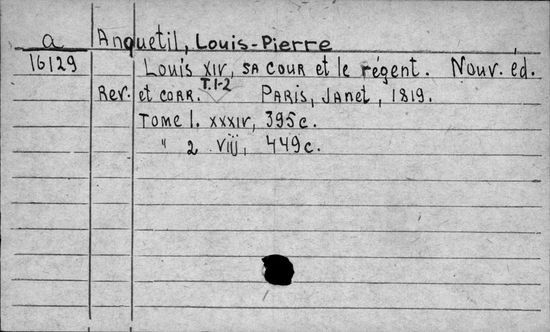 a Anquetil, Louis-Pierre
16129 Louis XIV, sa cour et le régent. Nouv. éd.
T.1-2
Rev. et corr. Paris, Janet, 1819.
Tome 1. XXXIV, 395c.
" 2 VIIJ, 449c.